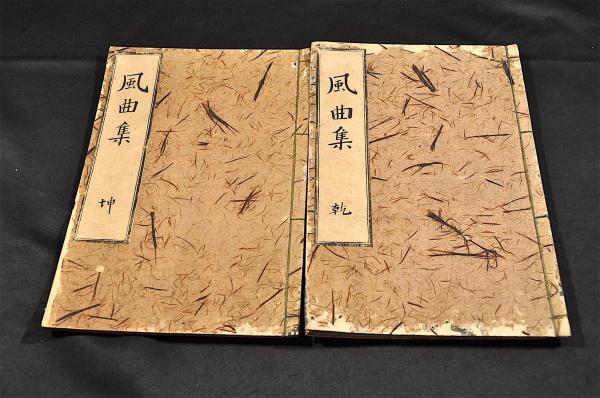 風曲集
乾
風曲集
坤